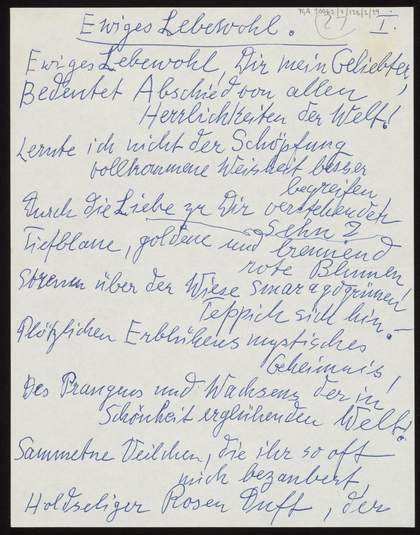 Ewiges Lebewohl.
I.
Ewiges Lebewohl, Dir mein Geliebter,
Bedeutet Abschied von allen
Herrlichkeiten der Welt!
Lernte ich nicht der Schöpfung
vollkommene Weisheit besser
begreifen,
Durch die Liebe zu Dir verstehender
Sehn?
Tiefblaue, goldene und brennend
rote Blumen
Streuen über der Wiese smaragdgrünen
Teppich sich hin. –
Plötzlichen Erblühens mystisches
Geheimnis!
Des Prangens und Wachsens der in
Schönheit erglühenden Welt!
Sammetne Veilchen, die ihr so oft
mich bezaubert,
Holdseliger Rosen Duft, der